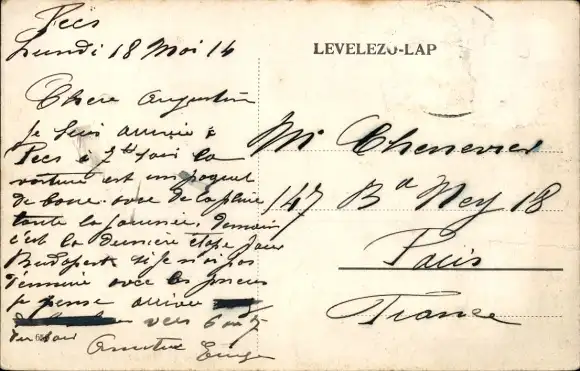 Pecs
Lundi 18 Mai 14
LEVELEZŐ-LAP
Chere Augustine
Je suis arrivée à
Pecs a 7 la
voiture est un paquet
de boue. avec de la pluie
toute la journée. demain
c'est la derniere étape pour
Budapest si je n'ai pas
d'ennuie avec les pneus
je pense arriver
vers 6 ou 7
du soir
Mr Chenevier
147 Bd Ney 18
Paris
France